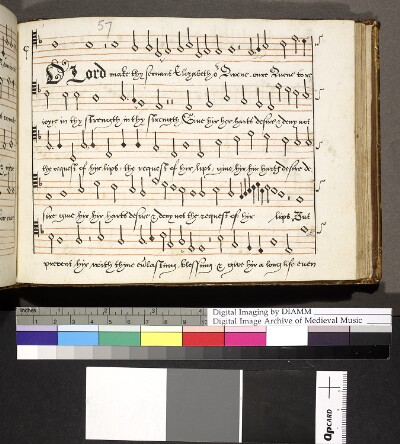 57
O Lord make thy servant Elizabeth or Quene oure Quene to re
joyce in thy strength in thy strength Give hir her harts desire & deny not
the request of hir lips the request of hir lips give hir hir harts desire de
sire give hir hir harts desire & deny not the request of hir lips But
prevent hir with thyne blessing & give hir a long life even
inches 1 2 3
Digital Imaging by DIAMM
Digital Image Archive of Medieval Music
QPCARD